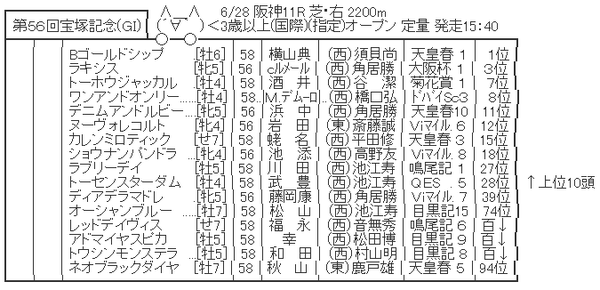 6/28 阪神11R 芝・右 2200m
第56回宝塚記念(GI) (´∀｀) <3歳以上(国際)(指定)オープン 定量 発走15:40
Bゴールドシップ [牡6] 58 横山典 (西)須貝尚 天皇春 1 1位
ラキシス [牝5] 56 cルメール (西)角居勝 大阪杯 1 3位
トーホウジャッカル [牡4] 58 酒井 (西)谷 潔 菊花賞 1 7位
ワンアンドオンリー [牡4] 58 M.デムーロ (西)橋口弘 ドバイSc3 8位
デニムアンドルビー [牝5] 56 浜中 (西)角居勝 天皇春10 11位
ヌーヴォレコルト [牝4] 56 岩田 (東)斎藤誠 Vマイル 6 12位
カレンミロティック [せ7] 58 蛯名 (西)平田修 天皇春 3 15位
ショウナンパンドラ [牝4] 56 池添 (西)高野友 Vマイル 8 18位
ラブリーデイ [牡5] 58 川田 (西)池江寿 鳴尾記 1 27位
トーセンスターダム [牡4] 58 武豊 (西)池江寿 QES 5 28位 ↑上位10頭
ディアデラマドレ [牝5] 56 藤岡康 (西)角居勝 Vマイル 7 39位
オーシャンブルー [牡7] 58 松山 (西)池江寿 目黒記15 74位
レッドデイヴィス [せ7] 58 福永 (西)音無秀 鳴尾記 6 百↓
アドマイヤスピカ [牡7] 58 幸 (西)松田博 目黒記 9 百↓
トウシンモンステラ [牡5] 58 和田 (西)村山明 目黒記 8 百↓
ネオブラックダイヤ [牡7] 58 秋山 (東)鹿戸雄 天皇春 5 94位